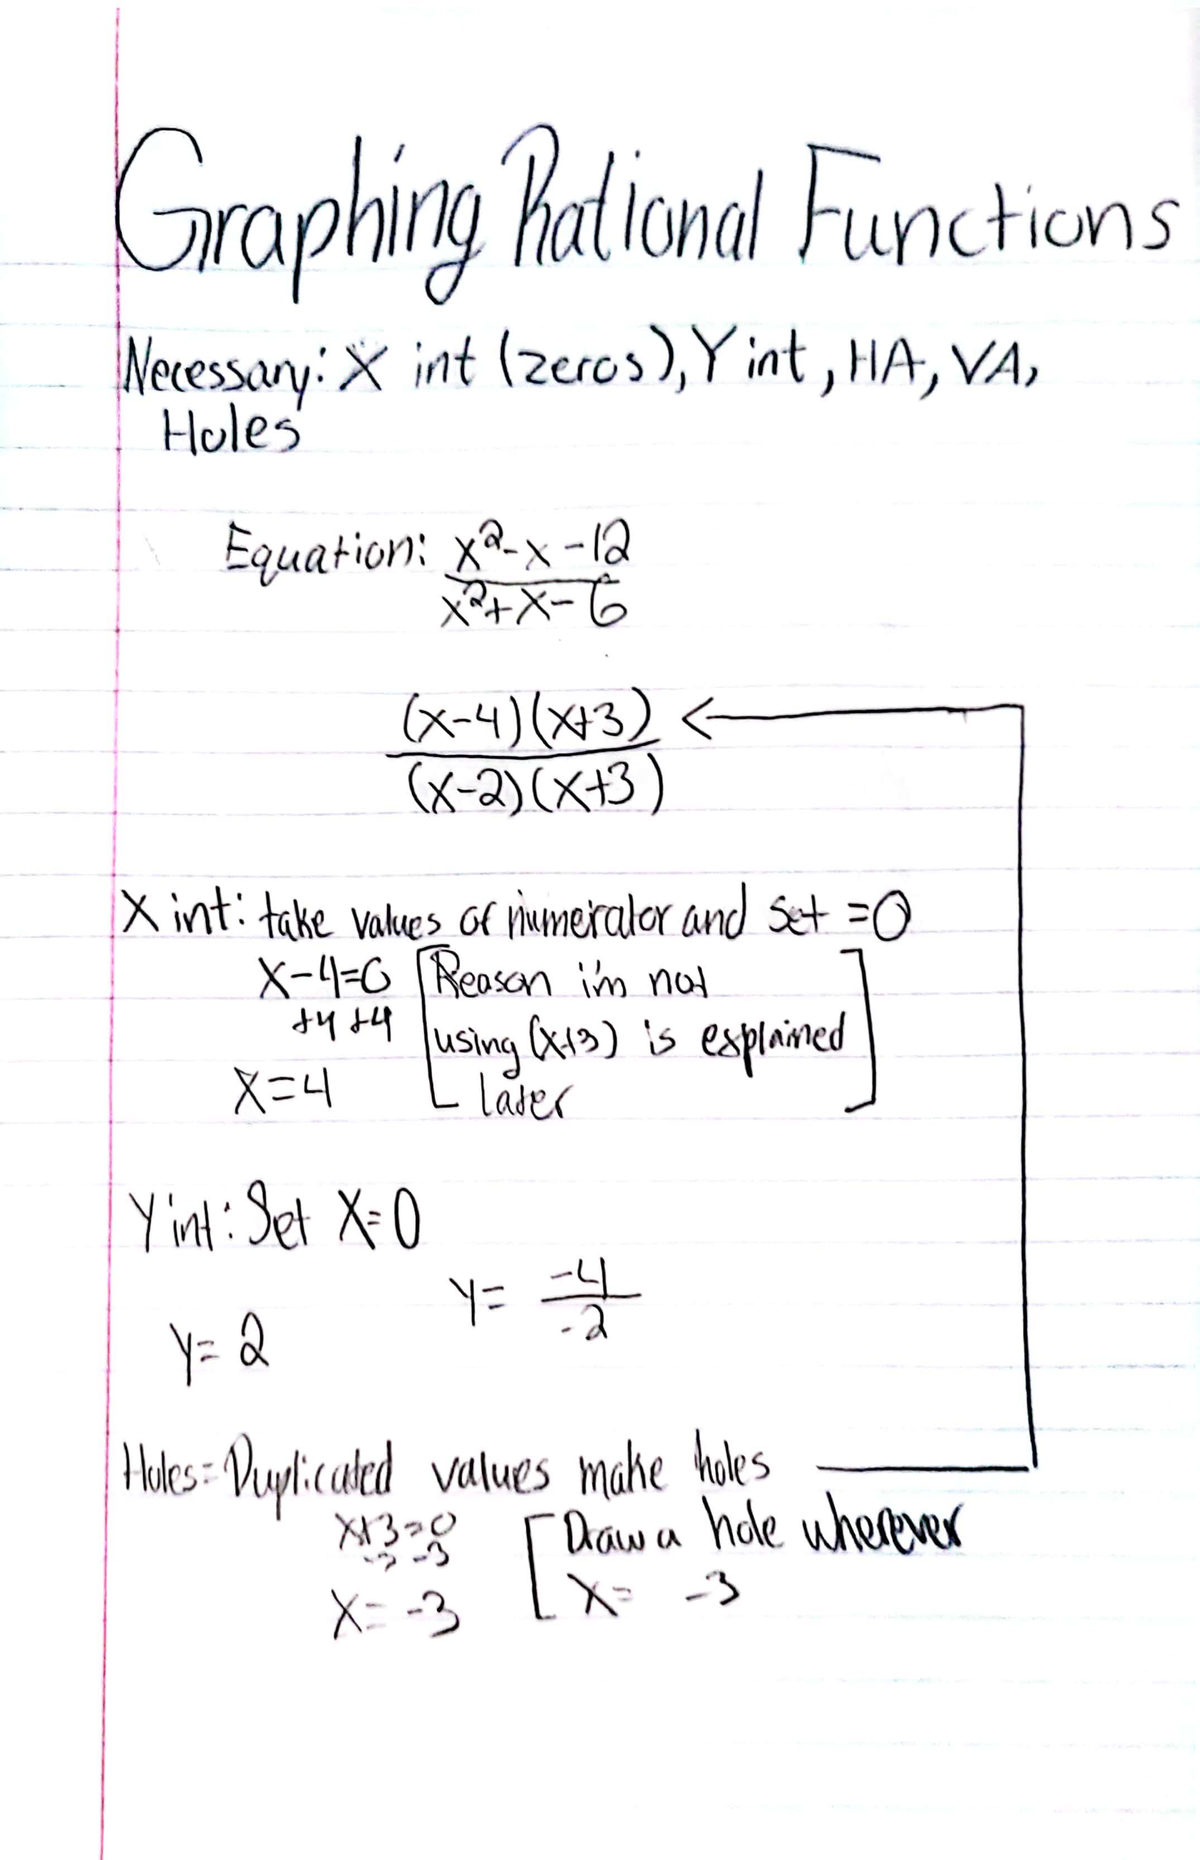 Graphing Rational Functions
Necessary: X int (zeros), Y int, HA, VA,
Holes
Equation: x²-x-12
x²+x-6
(x-4)(x+3) ←
(x-2)(x+3)
X int: take values of numerator and set =0
x-4=0 [Reason i'm not
+4 +4 using (x+3) is explained]
x=4 later
Y int: Set X=0
y= -4
-2
y= 2
Holes= Duplicated values make holes
x+3=0 [Draw a hole wherever
-3 -3
x= -3 x= -3